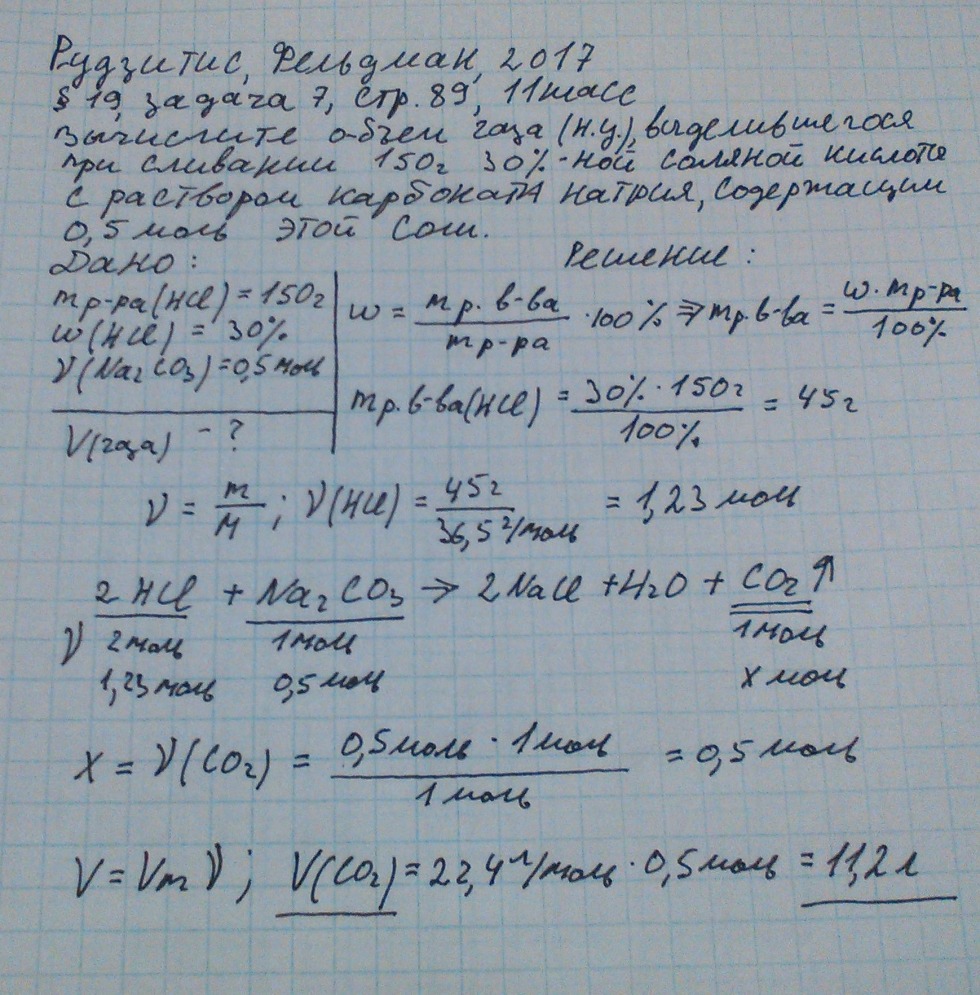 Рудзитис, Фельдман, 2017
§ 19, задача 7, стр. 89, 11 класс
Вычислите объем газа (н.у.), выделившегося
при сливании 150г 30%-ной соляной кислоты
с раствором карбоната натрия, содержащим
0,5 моль этой соли.
Дано:
mр-ра(HCl) = 150г
ω(HCl) = 30%
ν(Na2CO3) = 0,5 моль
V(газа) - ?
Решение:
ω = mр.в-ва / mр-ра · 100% ⇒ mр.в-ва = ω · mр-ра / 100%
mр.в-ва(HCl) = 30% · 150г / 100% = 45г
ν = m / M ; ν(HCl) = 45г / 36,5 г/моль = 1,23 моль
2HCl + Na2CO3 → 2NaCl + H2O + CO2↑
ν 2моль 1моль 1моль
1,23 моль 0,5 моль x моль
x = ν(CO2) = 0,5 моль · 1 моль / 1 моль = 0,5 моль
V = Vm ν ; V(CO2) = 22,4 л/моль · 0,5 моль = 11,2 л